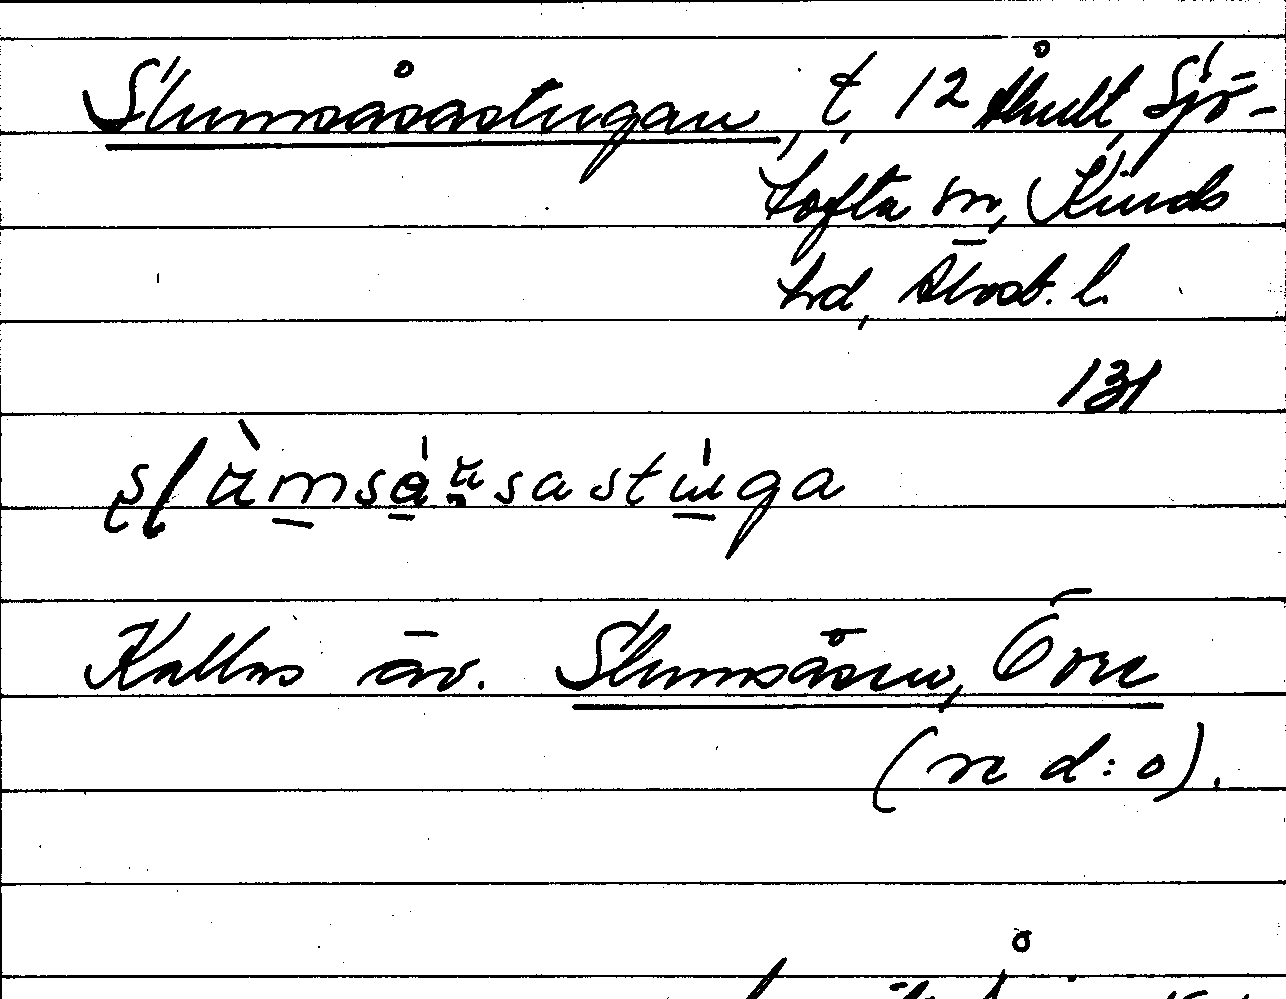 Slumsåsastugan, t. 12 Åhult, Sjö-
tofta sn, Kinds
hd, Älvsb. l.
131
Kallas äv. Slumsåsen, Övre
(n d:o).